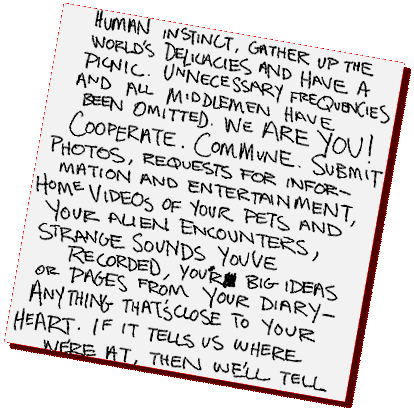 HUMAN INSTINCT, GATHER UP THE
WORLD'S DELICACIES AND HAVE A
PICNIC. UNNECESSARY FREQUENCIES
AND ALL MIDDLEMEN HAVE
BEEN OMITTED. WE ARE YOU!
COOPERATE. COMMUNE. SUBMIT
PHOTOS, REQUESTS FOR INFOR-
MATION AND ENTERTAINMENT,
HOME VIDEOS OF YOUR PETS AND
YOUR ALIEN ENCOUNTERS,
STRANGE SOUNDS YOU'VE
RECORDED, YOUR BIG IDEAS
OR PAGES FROM YOUR DIARY-
ANYTHING THAT'S CLOSE TO YOUR
HEART. IF IT TELLS US WHERE
WE'RE AT, THEN WE'LL TELL